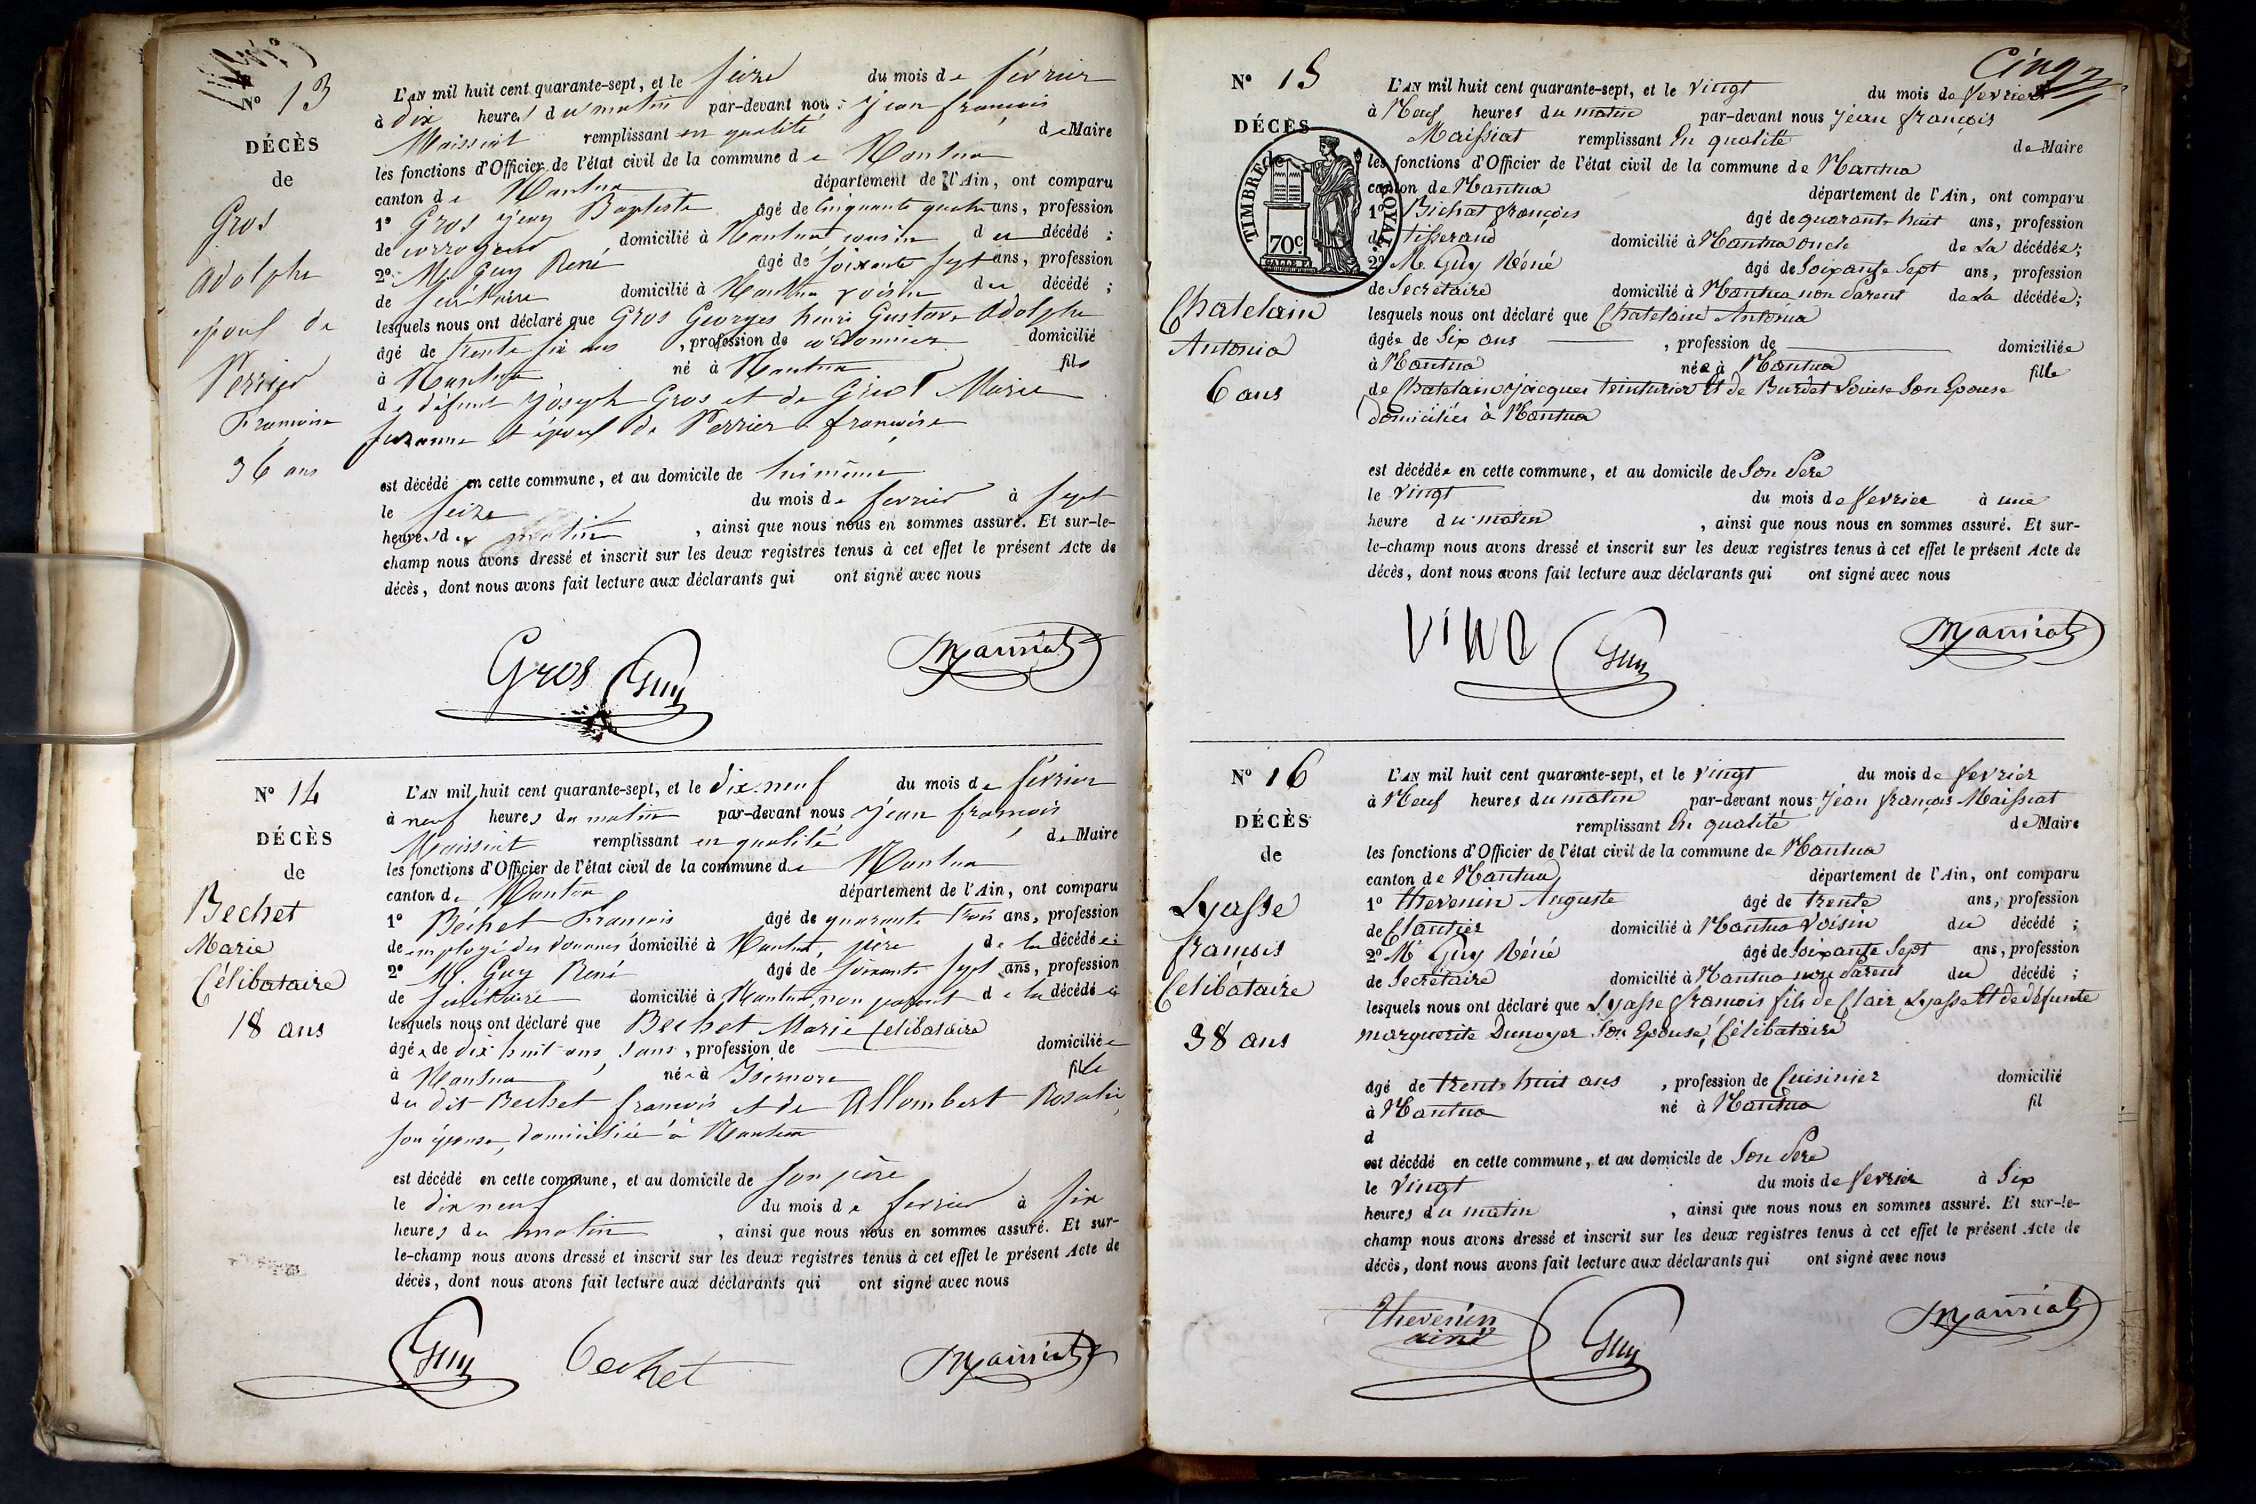 N° 13
DÉCÈS
de
Gros
Adolphe
époux de
Perrier
Françoise
36 ans
L'AN mil huit cent quarante-sept, et le seize du mois de février
à dix heures du matin par-devant nous Jean françois
Maissiat remplissant en qualité de Maire
les fonctions d'Officier de l'état civil de la commune de Nantua
canton de Nantua département de l'Ain, ont comparu
1° Gros Jean Baptiste âgé de cinquante quatre ans, profession
de corroyeur domicilié à Nantua cousin du décédé ;
2° Mr Guy René âgé de soixante sept ans, profession
de secrétaire domicilié à Nantua voisin du décédé ;
lesquels nous ont déclaré que Gros Georges henri Gustave Adolphe
âgé de trente six ans, profession de cordonnier domicilié
à Nantua né à Nantua fils
de défunt Joseph Gros et de Marie
Suzanne et époux de Perrier françoise
est décédé en cette commune, et au domicile de lui même
le seize du mois de fevrier à sept
heures du matin, ainsi que nous nous en sommes assuré. Et sur-le-
champ nous avons dressé et inscrit sur les deux registres tenus à cet effet le présent Acte de
décès, dont nous avons fait lecture aux déclarants qui ont signé avec nous
Gros Guy Maissiat
N° 14
DÉCÈS
de
Bechet
Marie
Célibataire
18 ans
L'AN mil huit cent quarante-sept, et le dix-neuf du mois de février
à neuf heures du matin par-devant nous Jean françois
Maissiat remplissant en qualité de Maire
les fonctions d'Officier de l'état civil de la commune de Nantua
canton de Nantua département de l'Ain, ont comparu
1° Béchet François âgé de quarante trois ans, profession
de employé des douanes domicilié à Nantua, père de la décédée ;
2° Mr Guy René âgé de soixante sept ans, profession
de secrétaire domicilié à Nantua, non parent de la décédée
lesquels nous ont déclaré que Bechet Marie Celibataire
âgée de dix huit ans, sans, profession de domiciliée
à Nantua née à Isernore fille
du dit Bechet françois et de Allombert Rosalie
son épouse, domiciliée à Nantua
est décédé en cette commune, et au domicile de son père
le dix neuf du mois de fevrier à six
heures du matin, ainsi que nous nous en sommes assuré. Et sur-
le-champ nous avons dressé et inscrit sur les deux registres tenus à cet effet le présent Acte de
décès, dont nous avons fait lecture aux déclarants qui ont signé avec nous
Guy bechet Maissiat
Cinq
N° 15
DÉCÈS
de
TIMBRE ROYAL
70c
Chatelain
Antonia
6 ans
L'AN mil huit cent quarante-sept, et le vingt du mois de fevrier
à Neuf heures du matin par-devant nous Jean françois
Maissiat remplissant En qualité de Maire
les fonctions d'Officier de l'état civil de la commune de Nantua
canton de Nantua département de l'Ain, ont comparu
1° Bichat françois âgé de quarante huit ans, profession
de tisserand domicilié à Nantua oncle de La décédée ;
2° Mr Guy Réné âgé de Soixante Sept ans, profession
de Secrétaire domicilié à Nantua non Parent de La décédée ;
lesquels nous ont déclaré que Chatelain Antonia
âgée de Six ans, profession de domiciliée
à Nantua née à Nantua fille
de Chatelain Jacques teinturier Et de Burdet Louise Son Epouse
domiciliés à Nantua
est décédée en cette commune, et au domicile de Son Pere
le vingt du mois de fevrier à une
heure du matin, ainsi que nous nous en sommes assuré. Et sur-
le-champ nous avons dressé et inscrit sur les deux registres tenus à cet effet le présent Acte de
décès, dont nous avons fait lecture aux déclarants qui ont signé avec nous
Guy Maissiat
N° 16
DÉCÈS
de
Lyasse
françois
Celibataire
38 ans
L'AN mil huit cent quarante-sept, et le vingt du mois de fevrier
à Neuf heures du matin par-devant nous Jean françois Maissiat
remplissant En qualité de Maire
les fonctions d'Officier de l'état civil de la commune de Nantua
canton de Nantua département de l'Ain, ont comparu
1° thevenin Auguste âgé de trente ans, profession
de Clautier domicilié à Nantua Voisin du décédé ;
2° Mr Guy Réné âgé de Soixante Sept ans, profession
de Secrétaire domicilié à Nantua non Parent du décédé ;
lesquels nous ont déclaré que Lyasse françois fils de Clair Lyasse Et de défunte
marguerite Dunoyer Son Epouse, Célibataire
âgé de trente huit ans, profession de Cuisinier domicilié
à Nantua né à Nantua fil
d
est décédé en cette commune, et au domicile de Son Pere
le Vingt du mois de fevrier à Six
heures du matin, ainsi que nous nous en sommes assuré. Et sur-le-
champ nous avons dressé et inscrit sur les deux registres tenus à cet effet le présent Acte de
décès, dont nous avons fait lecture aux déclarants qui ont signé avec nous
thevenin
ainé Guy Maissiat